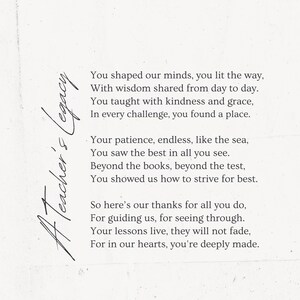 A Teacher's Legacy
You shaped our minds, you lit the way,
With wisdom shared from day to day.
You taught with kindness and grace,
In every challenge, you found a place.
Your patience, endless, like the sea,
You saw the best in all you see.
Beyond the books, beyond the test,
You showed us how to strive for best.
So here's our thanks for all you do,
For guiding us, for seeing through.
Your lessons live, they will not fade,
For in our hearts, you're deeply made.